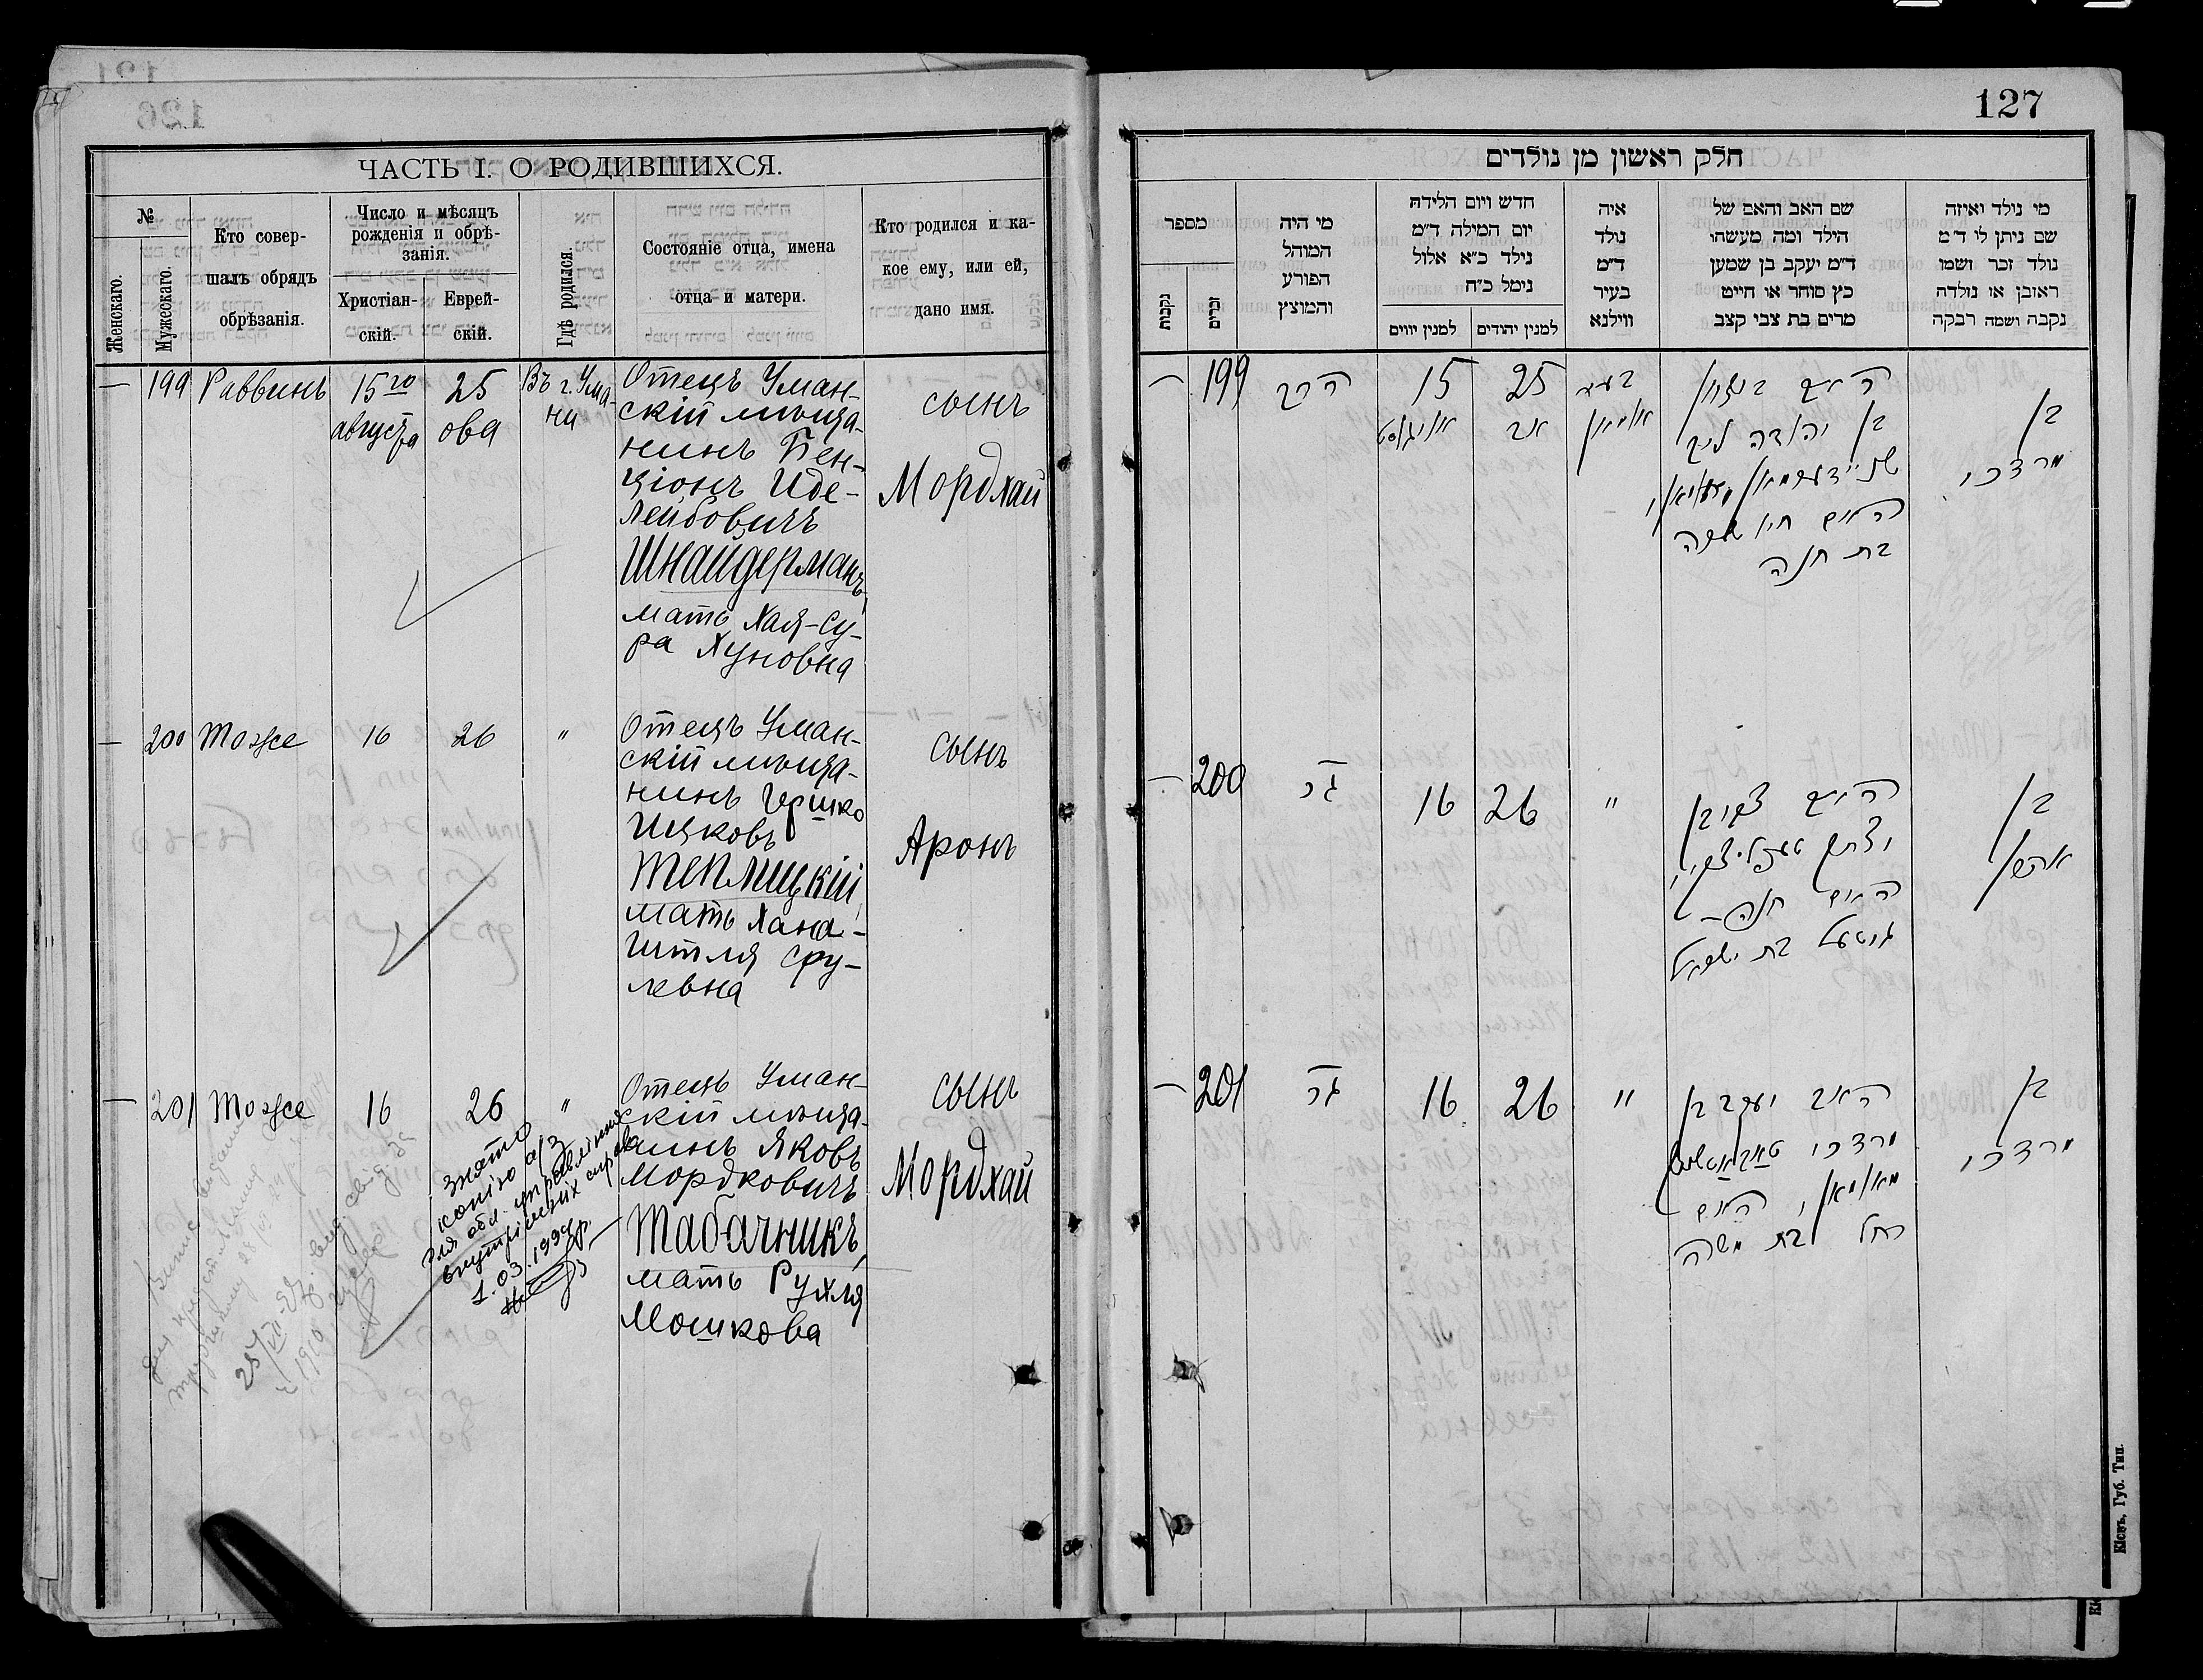 127
ЧАСТЬ I. О РОДИВШИХСЯ.
№
Женскаго.
Мужескаго.
Кто совер-
шалъ обрядъ
обрѣзанія.
Число и мѣсяцъ
рожденія и обрѣ-
занія.
Христіан-
скій.
Еврей-
скій.
Гдѣ родился.
Состояніе отца, имена
отца и матери.
Кто родился и ка-
кое ему, или ей,
дано имя.
— 199 Раввинъ
15го
августа
25
ова
Въ г. Ума-
ни
Отецъ Уман-
скій мѣща-
нинъ Бен-
ціонъ Иде-
Лейбовичъ
Шнайдерманъ,
мать Хая-Су-
ра Хуновна
сынъ
Мордхай
— 200 Тоже 16 26 "
Отецъ Уман-
скій мѣща-
нинъ Гершко
Ицковъ
Теплицкій,
мать Хана-
Гитля Сру-
левна
сынъ
Аронъ
— 201 Тоже 16 26 "
Отецъ Уман-
скій мѣща-
нинъ Яковъ
Мордковичъ
Табачникъ,
мать Рухля
Мошкова
сынъ
Мордхай
знято
копію а/з
для обл. управління
внутрішніх справ
1.03.1994р.
חלק ראשון מן נולדים
מספר
נקבות
זכרים
מי היה
המוהל
הפורע
והמוצץ
חדש ויום הלידה
יום המילה ד"מ
נילד כ"א אלול
נימל כ"ח
למנין יווים
למנין יהודים
איה
נולד
ד"מ
בעיר
ווילנא
שם האב והאם של
הילד ומה מעשהו
ד"מ יעקב בן שמעון
כץ סוחר או חייט
מרים בת צבי קצב
מי נילד ואיזה
שם ניתן לו ד"מ
נולד זכר ושמו
ראובן או נולדה
נקבה ושמה רבקה
— 199 הרב
15
אויגוסט
25
אב
בעיר
אומאן
האב בנציון
בן יהודה ליב
שניידערמאן מאומאן,
האם חיה שרה
בת חנה
בן
מרדכי
— 200 הנ"ל 16 26 "
האב
יצחק טעפליצקי,
האם חנה-
גיטעל בת ישראל
בן
אהרן
— 201 הנ"ל 16 26 "
האב יעקב בן
מרדכי טאבאטשניק
מאומאן, האם
רחל בת משה
בן
מרדכי
Кіевъ, Губ. Тип.